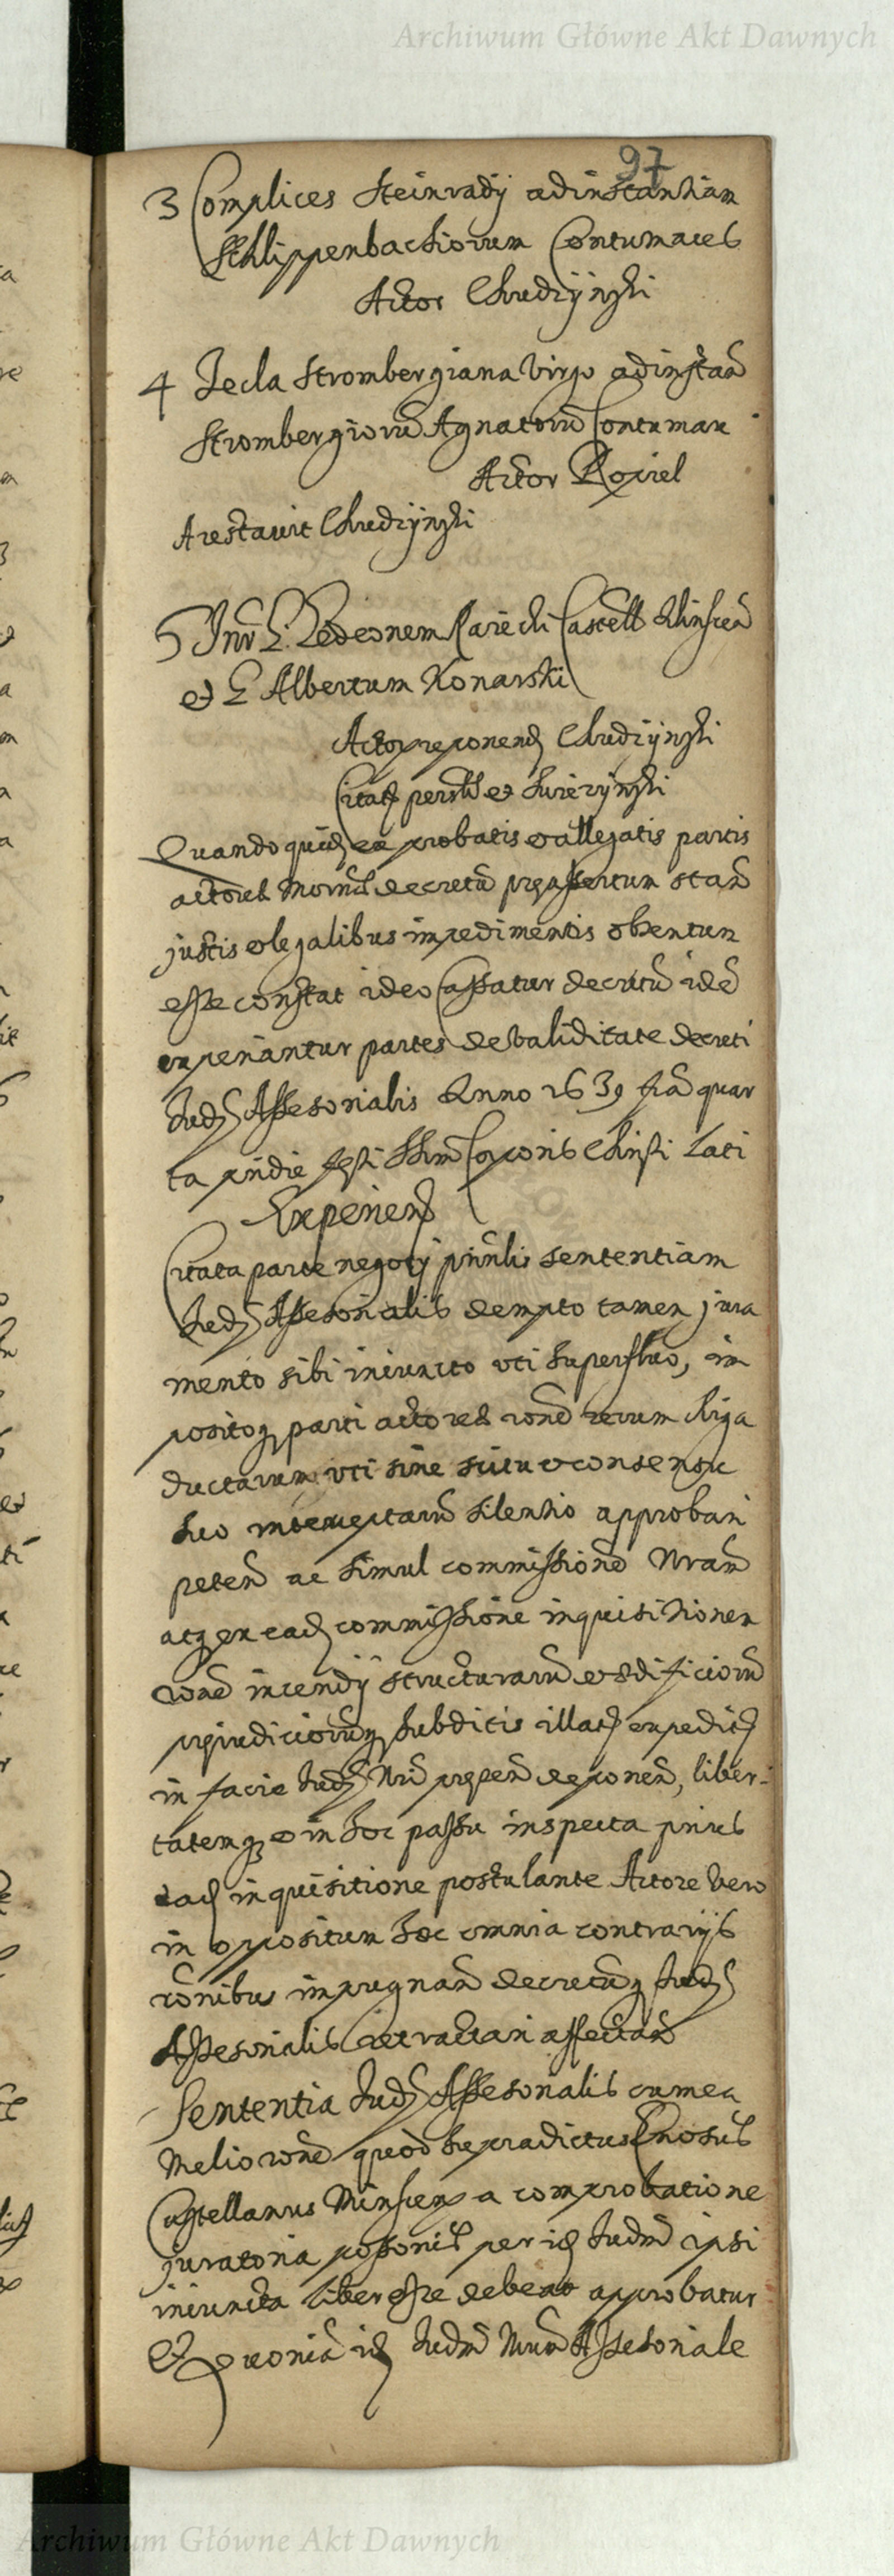 Archiwum Główne Akt Dawnych
97
3 Complices Steinradij ad instantiam
Schlippenbachiorum Contumaces
Actor Chudzijnski
4 Tecla Strombergiana Virgo ad instan
Strombergioru Agnatoru Contumax
Actor Roxiel
Arestavit Chudzijnski
5 Inr G. Gedeonem Raiecki Castell Minscen
et G Albertum Konarski
Actor preponend Chudzijnski
Citat person et Swiezijnski
Quandoquid ex probatis et allegatis partis
actores decretu pregassertum stan
justis et legalibus impedimentis obtentum
esse constat ideo Cassatur decretu ide
experiantur partes de validitate decreti
Jud Assessorialis Anno 1639 fia quar
ta pridie festi Sstmi Corporis Christi lati
Experiend
Citata parte negotij prinlis sententiam
Jud Assessorialis dempto tamen jura
mento sibi iniuncto uti superfluo, im
positoq parti actores rone rerum Riga
ductarum uti sine scitu et consensu
suo interceptaru silentio approbari
peten ac simul commissione Nram
atq ex ead commissione inquisitionem
rone incendij structuraru et edificioru
preiudicioruq subditis illat expedit
in facie Jud Nri prepen deponen, liber-
tatemq et in hoc passu inspecta prius
ead inquisitione postulante Actore vero
in oppositum hoc omnia contrarijs
ronibus impugnan decretuq Jud
Assessorialis retractari affectan
Sententia Jud Assessorialis cum ea
Meliorone quod supradictus Gnosus
Castellanus Minscen a comprobatione
juratoria per id Judm ipsi
iniuncta liber esse debeat approbatur
Et quonia id Judm Nrum Assessoriale
Archiwum Główne Akt Dawnych